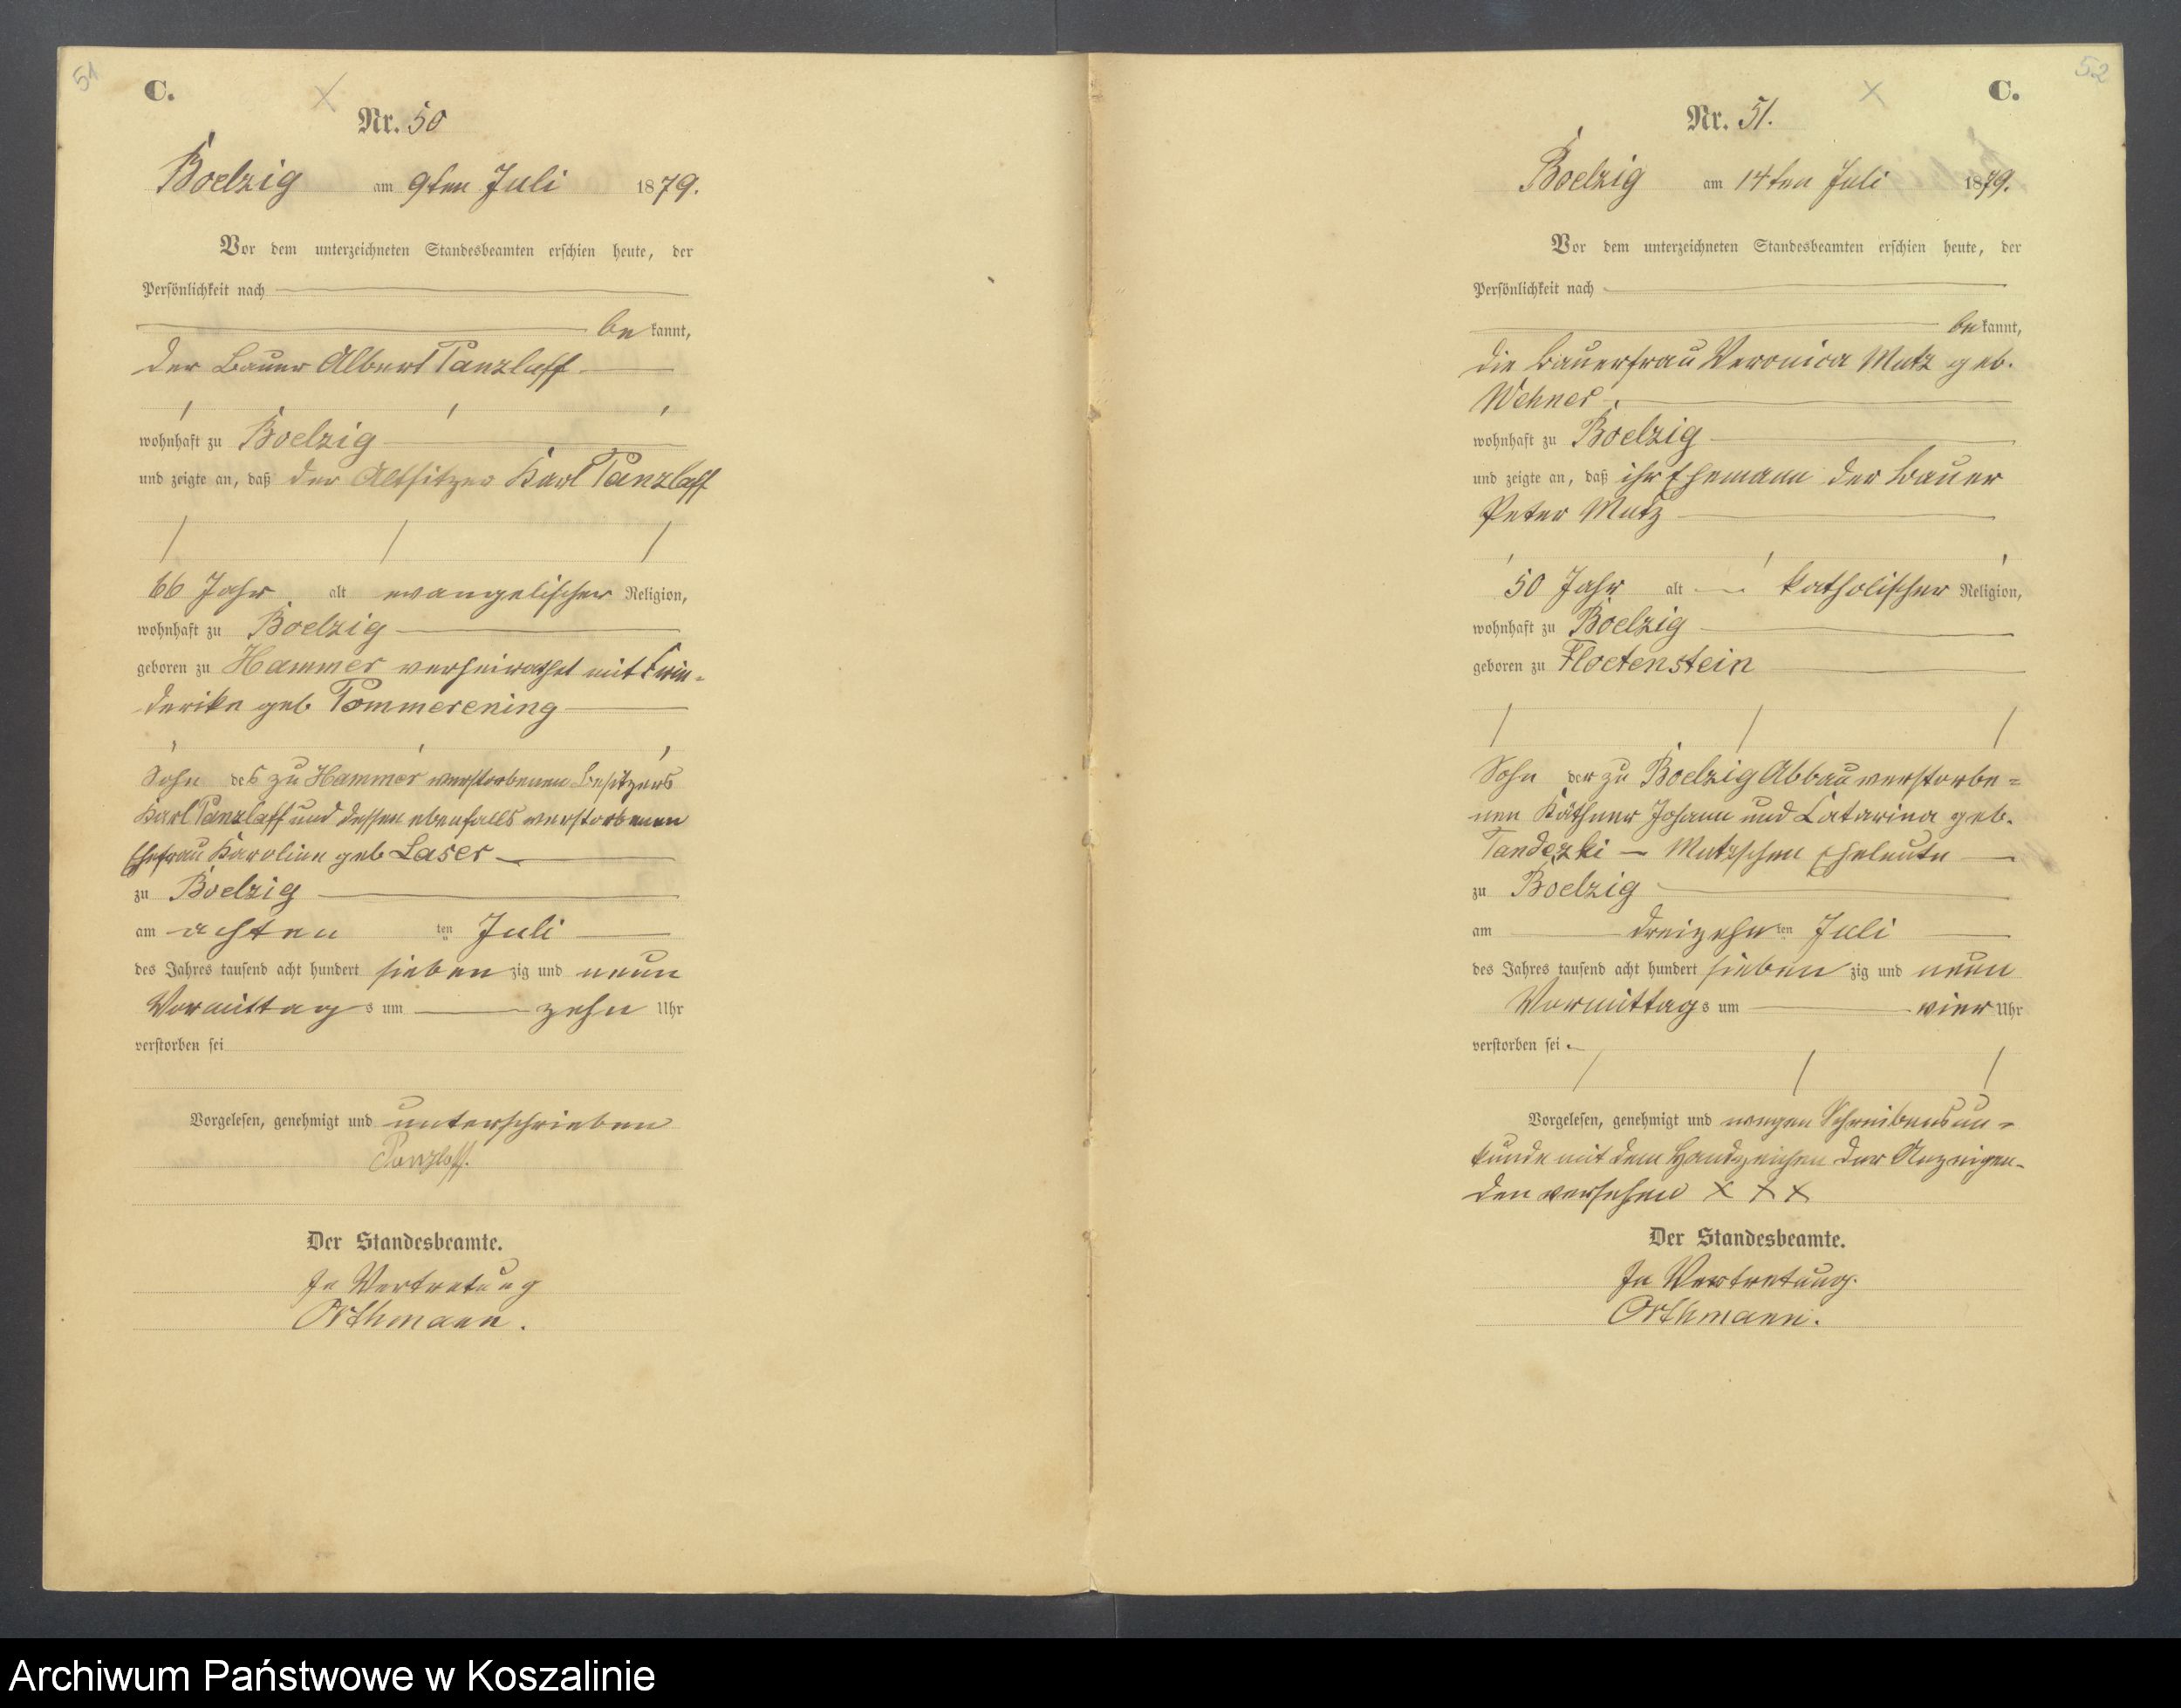 51
C.
Nr. 50
Boelzig am 9ten Juli 1879.
Vor dem unterzeichneten Standesbeamten erschien heute, der
Persönlichkeit nach
be kannt,
der Bauer Albert Panzlaff
wohnhaft zu Boelzig
und zeigte an, daß der Altsitzer Karl Panzlaff
66 Jahr alt evangelischer Religion,
wohnhaft zu Boelzig
geboren zu Hammer verheirathet mit Frie-
derike geb Pommerening
Sohn des zu Hammer verstorbenen Besitzers
Karl Panzlaff und dessen ebenfalls verstorbenen
Ehefrau Karoline geb Laser
zu Boelzig
am achten ten Juli
des Jahres tausend acht hundert sieben zig und neun
Vormittag s um zehn Uhr
verstorben sei
Vorgelesen, genehmigt und unterschrieben
Panzlaff.
Der Standesbeamte.
In Vertretung
Orthmann.
52
C.
Nr. 51.
Boelzig am 14ten Juli 1879.
Vor dem unterzeichneten Standesbeamten erschien heute, der
Persönlichkeit nach
be kannt,
die Bauerfrau Veronica Mutz geb.
Wehner
wohnhaft zu Boelzig
und zeigte an, daß ihr Ehemann der Bauer
Peter Mutz
50 Jahr alt katholischer Religion,
wohnhaft zu Boelzig
geboren zu Floetenstein
Sohn der zu Boelzig Abbau verstorbe=
nen Käthner Johann und Catarina geb.
Tandezki — Mutzschen Eheleute
zu Boelzig
am dreizehn ten Juli
des Jahres tausend acht hundert sieben zig und neun
Vormittag s um vier Uhr
verstorben sei
Vorgelesen, genehmigt und wegen Schreibensun=
kunde mit dem Handzeichen der Anzeigen-
den versehen X X X
Der Standesbeamte.
In Vertretung.
Orthmann.
Archiwum Państwowe w Koszalinie